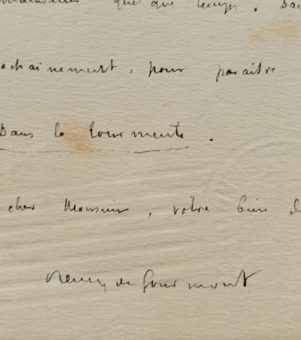 quelque temps. Da
ochainement, pour paraître
Dans la tourmente.
cher Monsieur, votre bien d
Remy de Gourmont